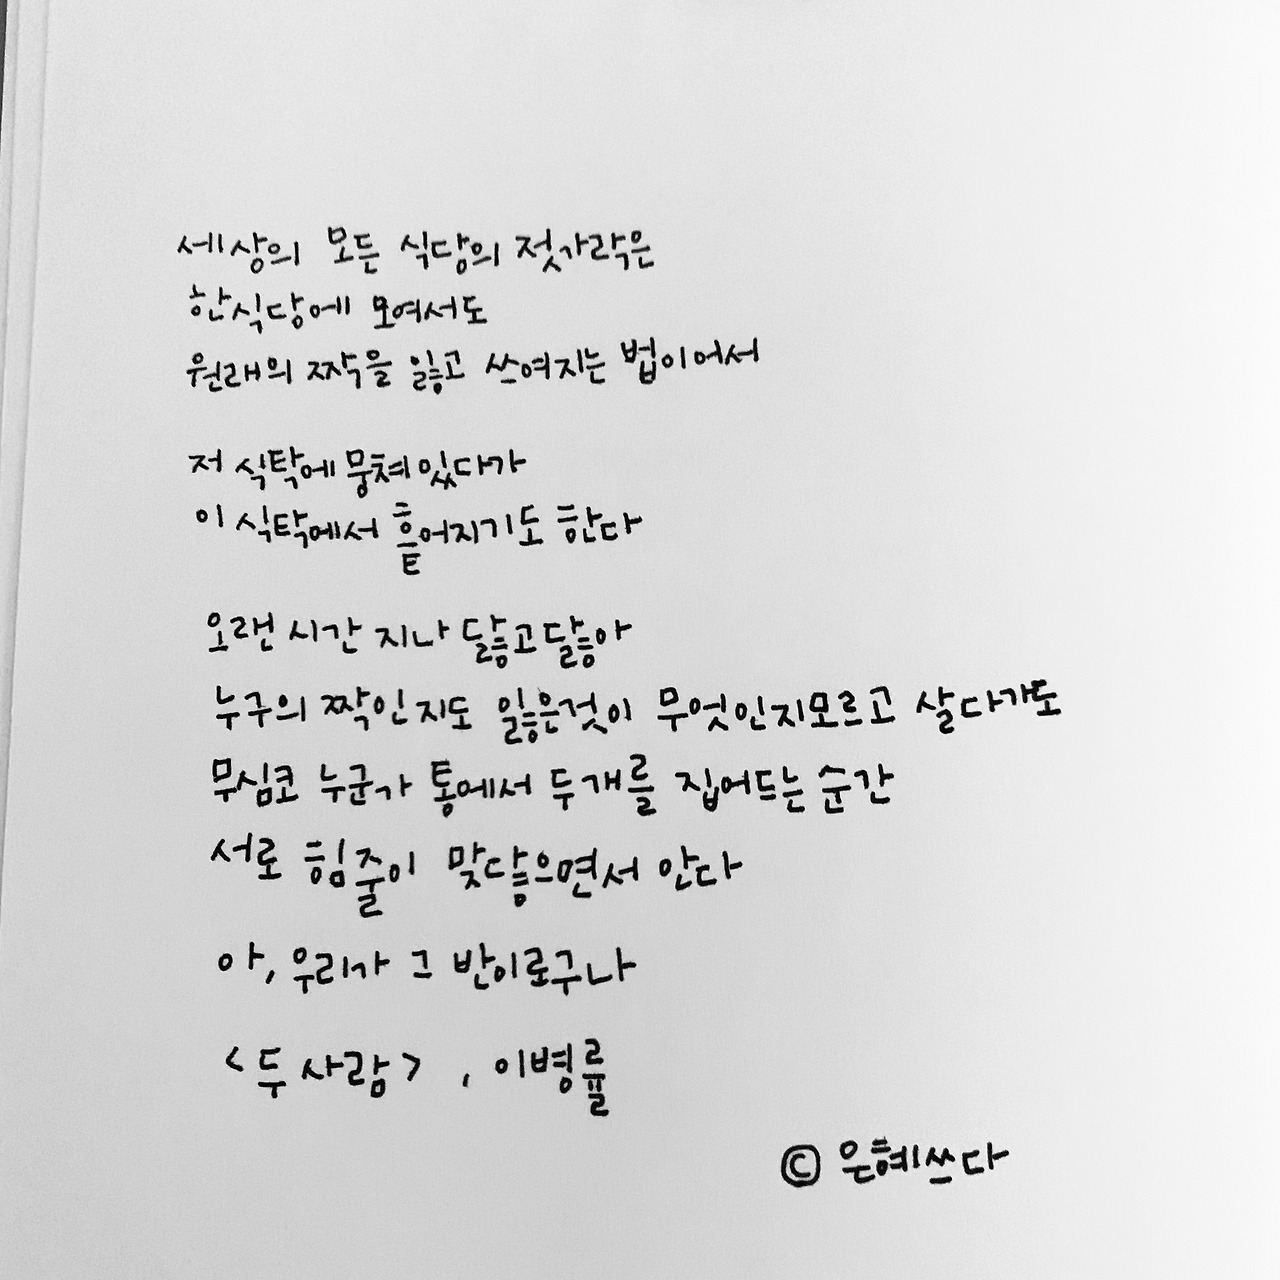 세상의 모든 식당의 젓가락은
한식당에 모여서도
원래의 짝을 잃고 쓰여지는 법이어서
저 식탁에 뭉쳐있다가
이 식탁에서 흩어지기도 한다
오랜 시간 지나 닳고닳아
누구의 짝인지도 잃은것이 무엇인지모르고 살다가도
무심코 누군가 통에서 두개를 집어드는 순간
서로 힘줄이 맞닿으면서 안다
아, 우리가 그 반이로구나
<두 사람> , 이병률
© 은혜쓰다